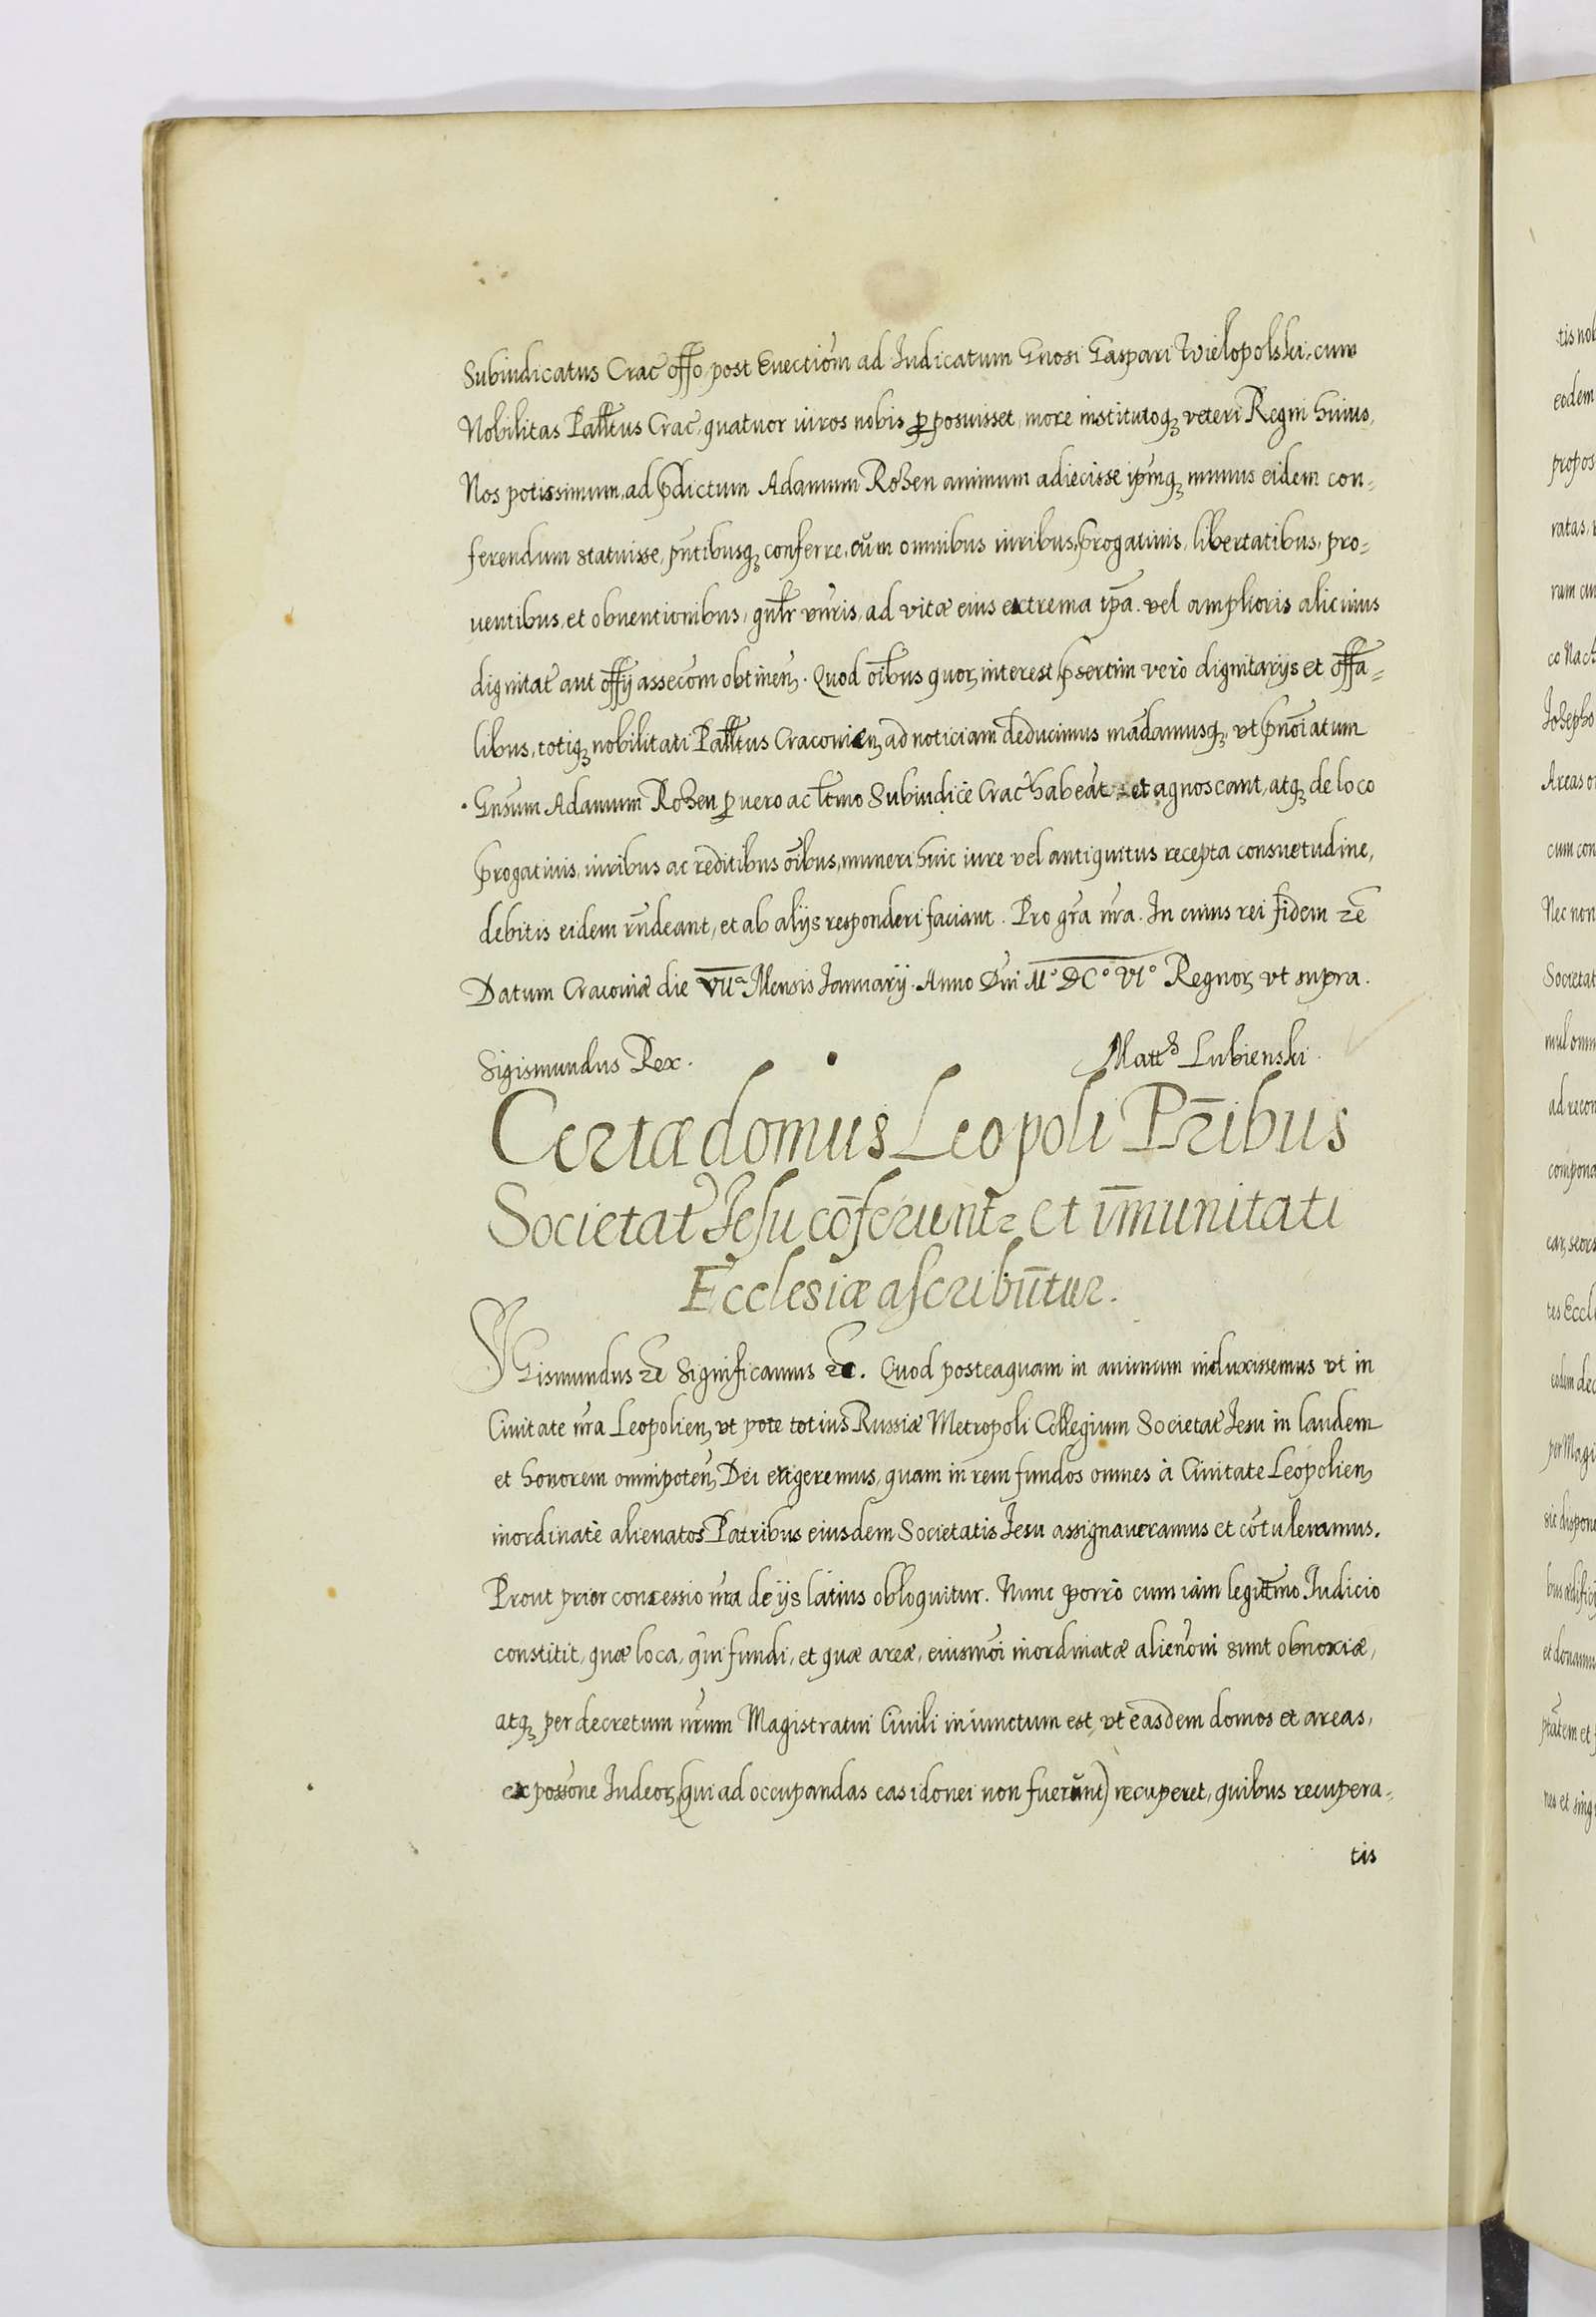 Subiudicatus Crac̃ offo, post Euectiõm ad Iudicatum Gnosi Gaspari Wielopolski, cum
Nobilitas Palltus Crac̃, quatuor uiros nobis ꝓposuisset, more institutoqꝫ veteri Regni huius,
Nos potissimum, ad p̃dictum Adamum Rožen animum adiecisse ip̃mqꝫ munus eidem con⸗
ferendum statuisse, pñtibusqꝫ conferre, cũm omnibus iuribus, p̃rogatiuis, libertatibus, pro⸗
uentibus, et obuentionibus, gñlr vñris, ad vitæ eius extrema tp̃a. vel amplioris alicuius
dignitat̃ aut offij assecõm obtineñ. Quod oĩbus quoꝝ interest p̃sertim verò dignitarijs et offa⸗
libus, totiqꝫ nobilitati Palltus Cracouieñ ad noticiam deducimus mãdamusqꝫ, vt p̃noĩatum
Gñsum Adamum Rožen ꝓ uero ac ltmo Subiudicẽ Crac̃ habeãt et agnoscant, atqꝫ de loco
p̃rogatiuis, iuribus ac reditibus oĩbus, muneri huic iure vel antiquitus recepta consuetudine,
debitis eidem rñdeant, et ab alijs responderi faciant. Pro gr̃a nr̃a. In cuius rei fidem ꝛc̃
Datum Cracouiæ die VIIa Mensis Ianuarij. Anno Dñi M° DC° VI° Regnoꝝ vt supra.
Sigismundus Rex. Matths Lubienski.
Certæ domus Leopoli Pr̃ibus
Societat̃ Jesu cõferuntr̃ et im̃unitati
Ecclesiæ ascribũtur.
SIGismundus ꝛc̃ Significamus ꝛc̃. Quod posteaquam in animum induxissemus vt in
Ciuitate nr̃a Leopolieñ, vt pote totius Russiæ Metropoli Collegium Societat̃ Iesu in laudem
et honorem omnipoteñ Dei erigeremus, quam in rem fundos omnes à Ciuitate Leopolieñ
inordinatè alienatos Patribus eiusdem Societatis Iesu assignaueramus et cõtuleramus.
Prout prior concessio nr̃a de ijs latius obloquitur. Nunc porrò cum iam legittmo Iudicio
constitit, quæ loca, qui fundi, et quæ areæ, eiusmõi inordinatæ alienõni sunt obnoxiæ,
atqꝫ per decretum nr̃um Magistratui Ciuili iniunctum est, vt easdem domos et areas,
ex possõne Iudeoꝝ (qui ad occupandas eas idonei non fuerũnt) recuperet, quibus recupera⸗
tis